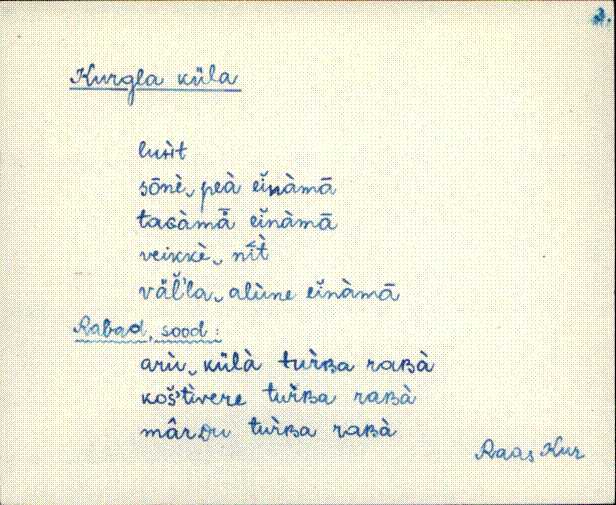 2.
Kurgla küla
luh̀t
sōnè‿peà eĭnàmā
taɢàmā̊ eĭnàmā
veikkè‿nī̀t
vä̆l'la‿alùne eĭnàmā
Rabad, sood:
arù‿külà tuȑʙa raʙà
koš'tìvere tuȑʙa raʙà
mârᴅu tuȑʙa raʙà
Raas Kur